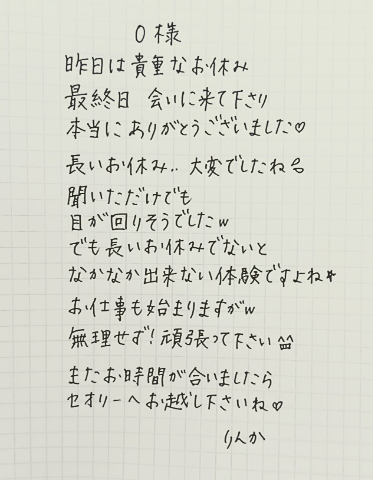 O様
昨日は貴重なお休み
最終日 会いに来て下さり
本当にありがとうございました♡
長いお休み.. 大変でしたね💪
聞いただけでも
目が回りそうでしたw
でも長いお休みでないと
なかなか出来ない体験ですよね☆
お仕事も始まりますがw
無理せず!頑張って下さい^^
またお時間が合いましたら
セオリーへお越し下さいね♡
りんか